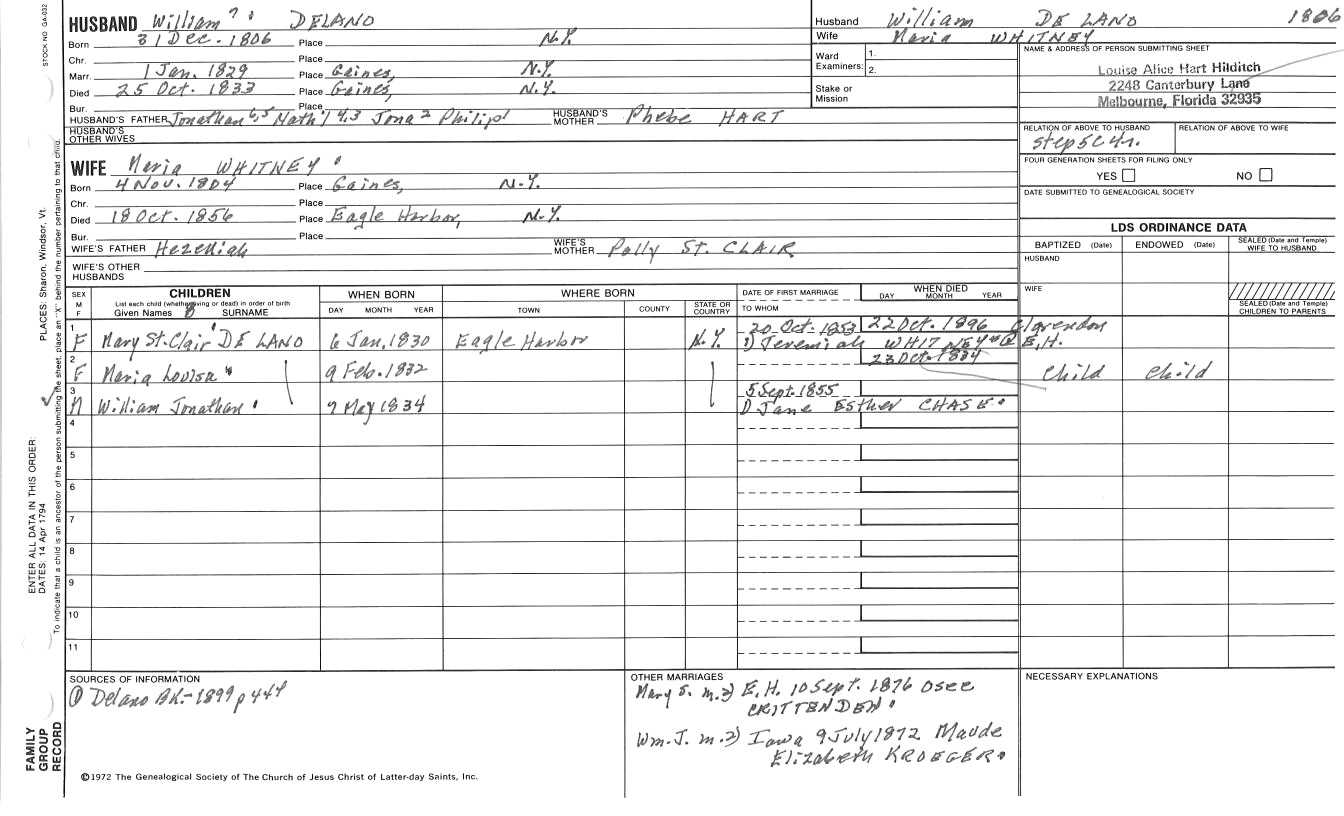 STOCK NO. GA-032
HUSBAND William 7 DELANO
Born 31 Dec. 1806 Place N.Y.
Chr. Place
Marr. 1 Jan. 1829 Place Gaines, N.Y.
Died 25 Oct. 1833 Place Gaines, N.Y.
Bur. Place
HUSBAND'S FATHER Jonathan 6,5 Nath'l 4,3 Jona 2 Philip 1 HUSBAND'S MOTHER Phebe HART
HUSBAND'S OTHER WIVES
WIFE Maria WHITNEY
Born 4 Nov. 1804 Place Gaines, N.Y.
Chr. Place
Died 18 Oct. 1856 Place Eagle Harbor, N.Y.
Bur. Place
WIFE'S FATHER Hezekiah WIFE'S MOTHER Polly ST. CLAIR
WIFE'S OTHER HUSBANDS
Husband William DE LANO 1806
Wife Maria WHITNEY
Ward Examiners: 1.
2.
Stake or Mission
NAME & ADDRESS OF PERSON SUBMITTING SHEET
Louise Alice Hart Hilditch
2248 Canterbury Lane
Melbourne, Florida 32935
RELATION OF ABOVE TO HUSBAND RELATION OF ABOVE TO WIFE
step5C4r.
FOUR GENERATION SHEETS FOR FILING ONLY
YES NO
DATE SUBMITTED TO GENEALOGICAL SOCIETY
LDS ORDINANCE DATA
BAPTIZED (Date) ENDOWED (Date) SEALED (Date and Temple) WIFE TO HUSBAND
HUSBAND
WIFE
SEALED (Date and Temple) CHILDREN TO PARENTS
SEX M F CHILDREN WHEN BORN WHERE BORN DATE OF FIRST MARRIAGE WHEN DIED
List each child (whether living or dead) in order of birth
Given Names SURNAME DAY MONTH YEAR TOWN COUNTY STATE OR COUNTRY TO WHOM DAY MONTH YEAR
1 20 Oct. 1853 22 Oct. 1896 Clarendon
F Mary St. Clair DE LANO 6 Jan, 1830 Eagle Harbor N.Y. 1) Jeremiah WHITNEY @ E.H.
2 23 Oct. 1834
F Maria Louisa 9 Feb. 1832 Child Child
3 5 Sept. 1855
M William Jonathan 9 May 1834 1) Jane Esther CHASE
4
5
6
7
8
9
10
11
SOURCES OF INFORMATION
① Delano BK.-1899 p 444
OTHER MARRIAGES
Mary S. m. 2) E.H. 10 Sept. 1876 Osee
CRITTENDEN
Wm. J. m. 2) Iowa 9 July 1872 Maude
Elizabeth KROEGER
NECESSARY EXPLANATIONS
©1972 The Genealogical Society of The Church of Jesus Christ of Latter-day Saints, Inc.
FAMILY GROUP RECORD
ENTER ALL DATA IN THIS ORDER:
DATES: 14 Apr 1794
PLACES: Sharon, Windsor, Vt.
To indicate that a child is an ancestor of the person submitting the sheet, place an "X" behind the number pertaining to that child.